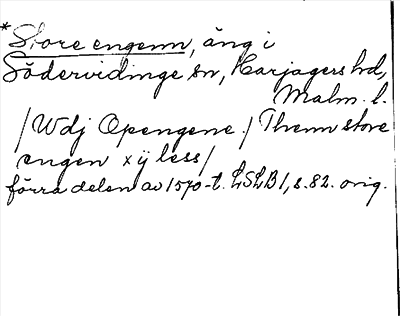 *Store engenn, äng i
Södervidinge sn, Harjagers hd,
Malm. l.
/Wdj Opengene./ Thenn store
engen xÿ less/
förra delen av 1570-t. LSLB1, s. 82. orig.